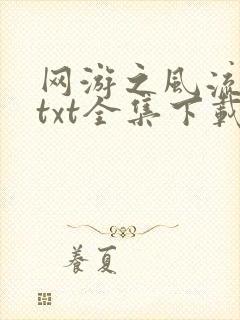 网游之风流
txt全集下载
養夏